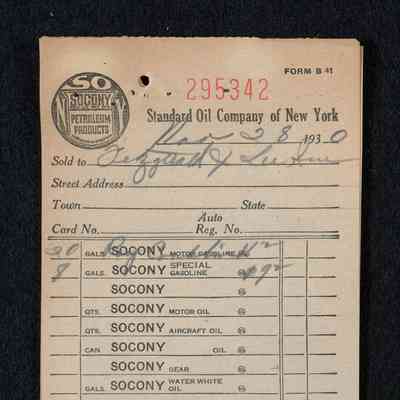 SO
SOCONY
PETROLEUM
PRODUCTS
NY
FORM B 41
295342
Standard Oil Company of New York
Nov 28 1930
Sold to
Street Address
Town State
Auto
Card No. Reg. No.
20 GALS. SOCONY MOTOR GASOLINE @
8 GALS. SOCONY SPECIAL GASOLINE @
SOCONY @
QTS. SOCONY MOTOR OIL @
QTS. SOCONY AIRCRAFT OIL @
CAN SOCONY OIL @
SOCONY GEAR @
GALS. SOCONY WATER WHITE OIL @